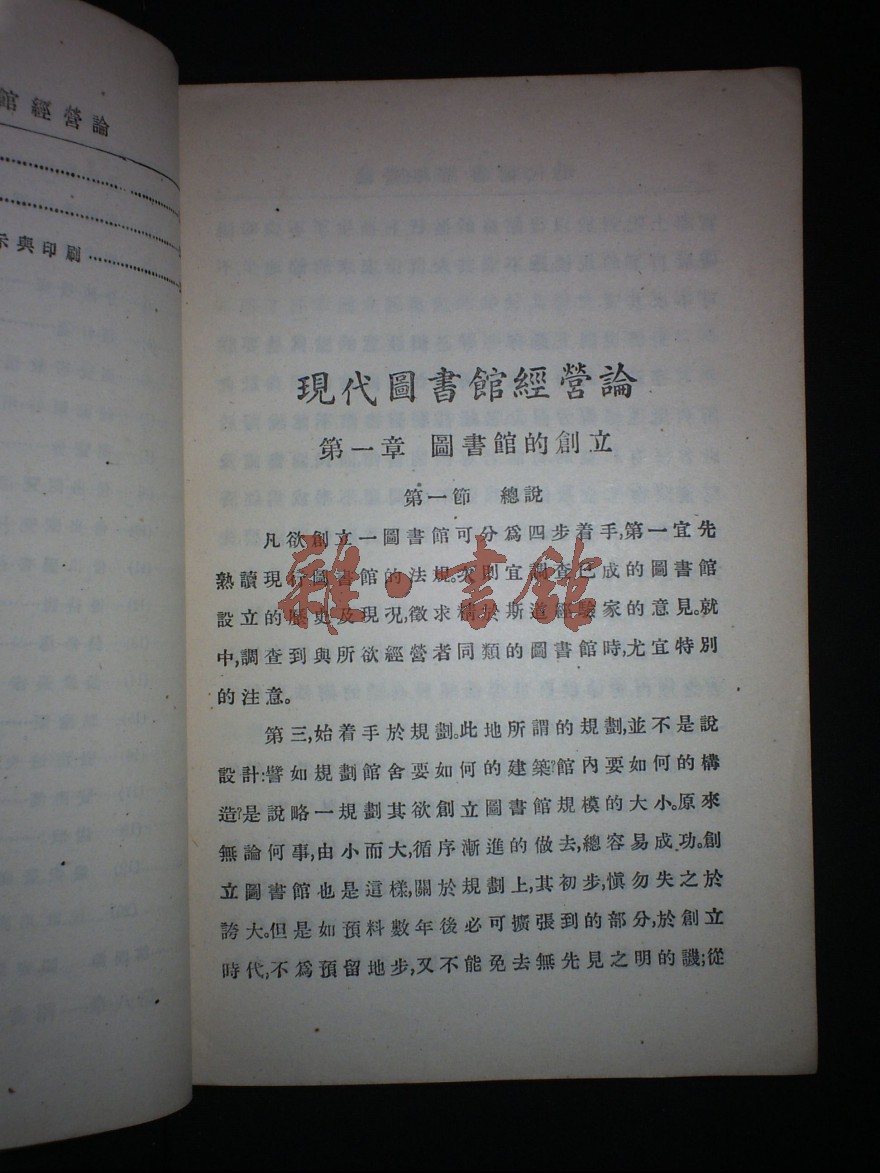 館經營論
示與印刷
現代圖書館經營論
第一章 圖書館的創立
第一節 總說
凡欲創立一圖書館可分爲四步着手,第一宜先
熟讀現行圖書館的法規。次則宜調查已成的圖書館
設立的歷史及現況,徵求精於斯道經驗家的意見。就
中,調查到與所欲經營者同類的圖書館時,尤宜特別
的注意。
第三,始着手於規劃。此地所謂的規劃,並不是說
設計:譬如規劃館舍要如何的建築?館內要如何的構
造?是說略一規劃其欲創立圖書館規模的大小。原來
無論何事,由小而大,循序漸進的做去,總容易成功。創
立圖書館也是這樣,關於規劃上,其初步,愼勿失之於
誇大。但是如預料數年後必可擴張到的部分,於創立
時代,不爲預留地步,又不能免去無先見之明的譏;從
雜·書館